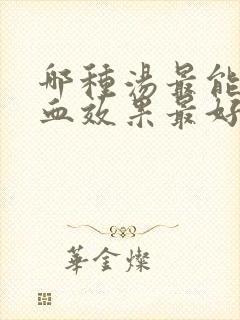 哪種湯最能
血效果最好
華金燦